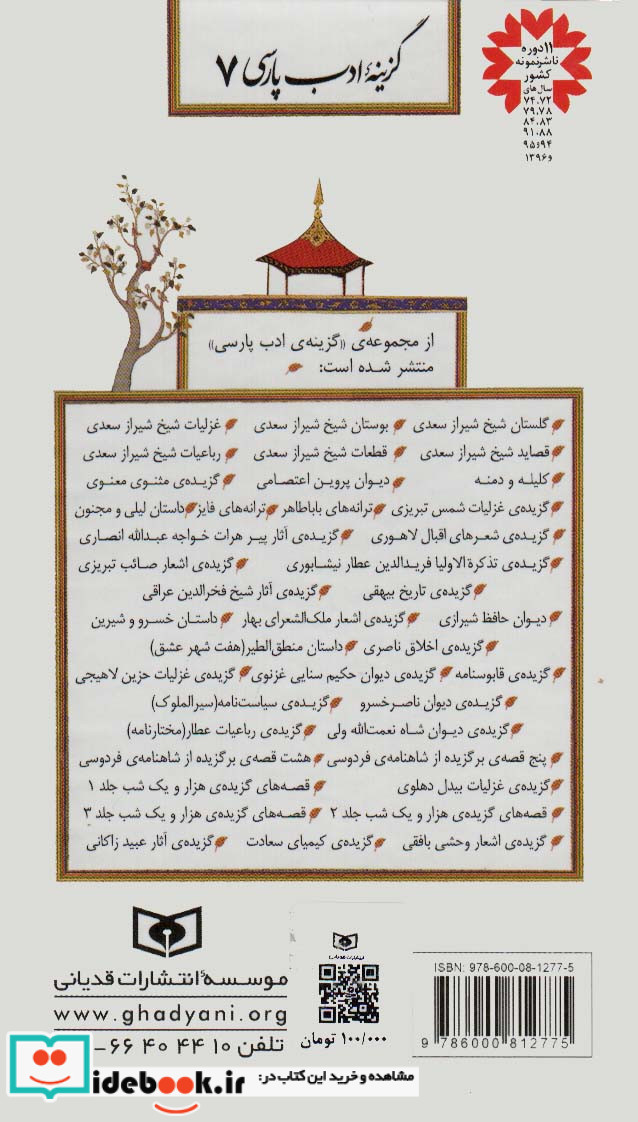 ۱۱ دوره
ناشر نمونه
کشور
سال‌های
۷۴،۷۲
۷۹،۷۸
۸۴،۸۳
۹۱،۸۸
۹۴و۹۵
و۱۳۹۶
گزینهٔ ادب پارسی ۷
از مجموعه‌ی «گزینه‌ی ادب پارسی»
منتشر شده است:
گلستان شیخ شیراز سعدی بوستان شیخ شیراز سعدی غزلیات شیخ شیراز سعدی
قصاید شیخ شیراز سعدی قطعات شیخ شیراز سعدی رباعیات شیخ شیراز سعدی
کلیله و دمنه دیوان پروین اعتصامی گزیده‌ی مثنوی معنوی
گزیده‌ی غزلیات شمس تبریزی ترانه‌های باباطاهر ترانه‌های فایز داستان لیلی و مجنون
گزیده‌ی شعرهای اقبال لاهوری گزیده‌ی آثار پیر هرات خواجه عبدالله انصاری
گزیده‌ی تذکرة‌الاولیا فریدالدین عطار نیشابوری گزیده‌ی اشعار صائب تبریزی
گزیده‌ی تاریخ بیهقی گزیده‌ی آثار شیخ فخرالدین عراقی
دیوان حافظ شیرازی گزیده‌ی اشعار ملک‌الشعرای بهار داستان خسرو و شیرین
گزیده‌ی اخلاق ناصری داستان منطق‌الطیر(هفت شهر عشق)
گزیده‌ی قابوسنامه گزیده‌ی دیوان حکیم سنایی غزنوی گزیده‌ی غزلیات حزین لاهیجی
گزیده‌ی دیوان ناصرخسرو گزیده‌ی سیاست‌نامه(سیرالملوک)
گزیده‌ی دیوان شاه نعمت‌الله ولی گزیده‌ی رباعیات عطار(مختارنامه)
پنج قصه‌ی برگزیده از شاهنامه‌ی فردوسی هشت قصه‌ی برگزیده از شاهنامه‌ی فردوسی
گزیده‌ی غزلیات بیدل دهلوی قصه‌های گزیده‌ی هزار و یک شب جلد ۱
قصه‌های گزیده‌ی هزار و یک شب جلد ۲ قصه‌های گزیده‌ی هزار و یک شب جلد ۳
گزیده‌ی اشعار وحشی بافقی گزیده‌ی کیمیای سعادت گزیده‌ی آثار عبید زاکانی
موسسهٔ انتشارات قدیانی
www.ghadyani.org
تلفن ۱۰ ۴۴ ۴۰ ۶۶-
انتشارات قدیانی
۱۰۰/۰۰۰ تومان
ISBN: 978-600-08-1277-5
9 786000 812775
idebook.ir
مشاهده و خرید این کتاب در: